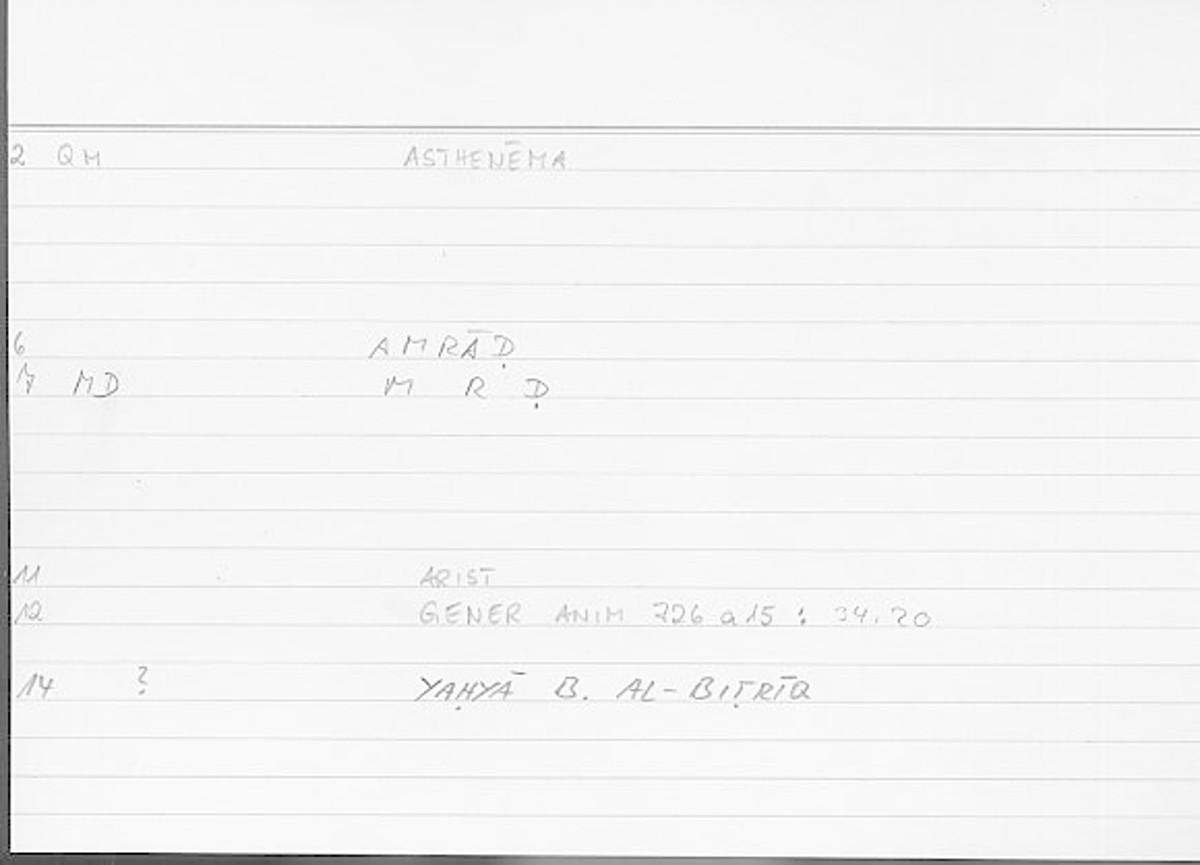 2 QM ASTHENĒMA
6 AMRĀḌ
7 MD M R Ḍ
11 ARIST
12 GENER ANIM 726 a 15 : 34.20
14 ? YAḤYĀ B. AL-BIṬRĪQ